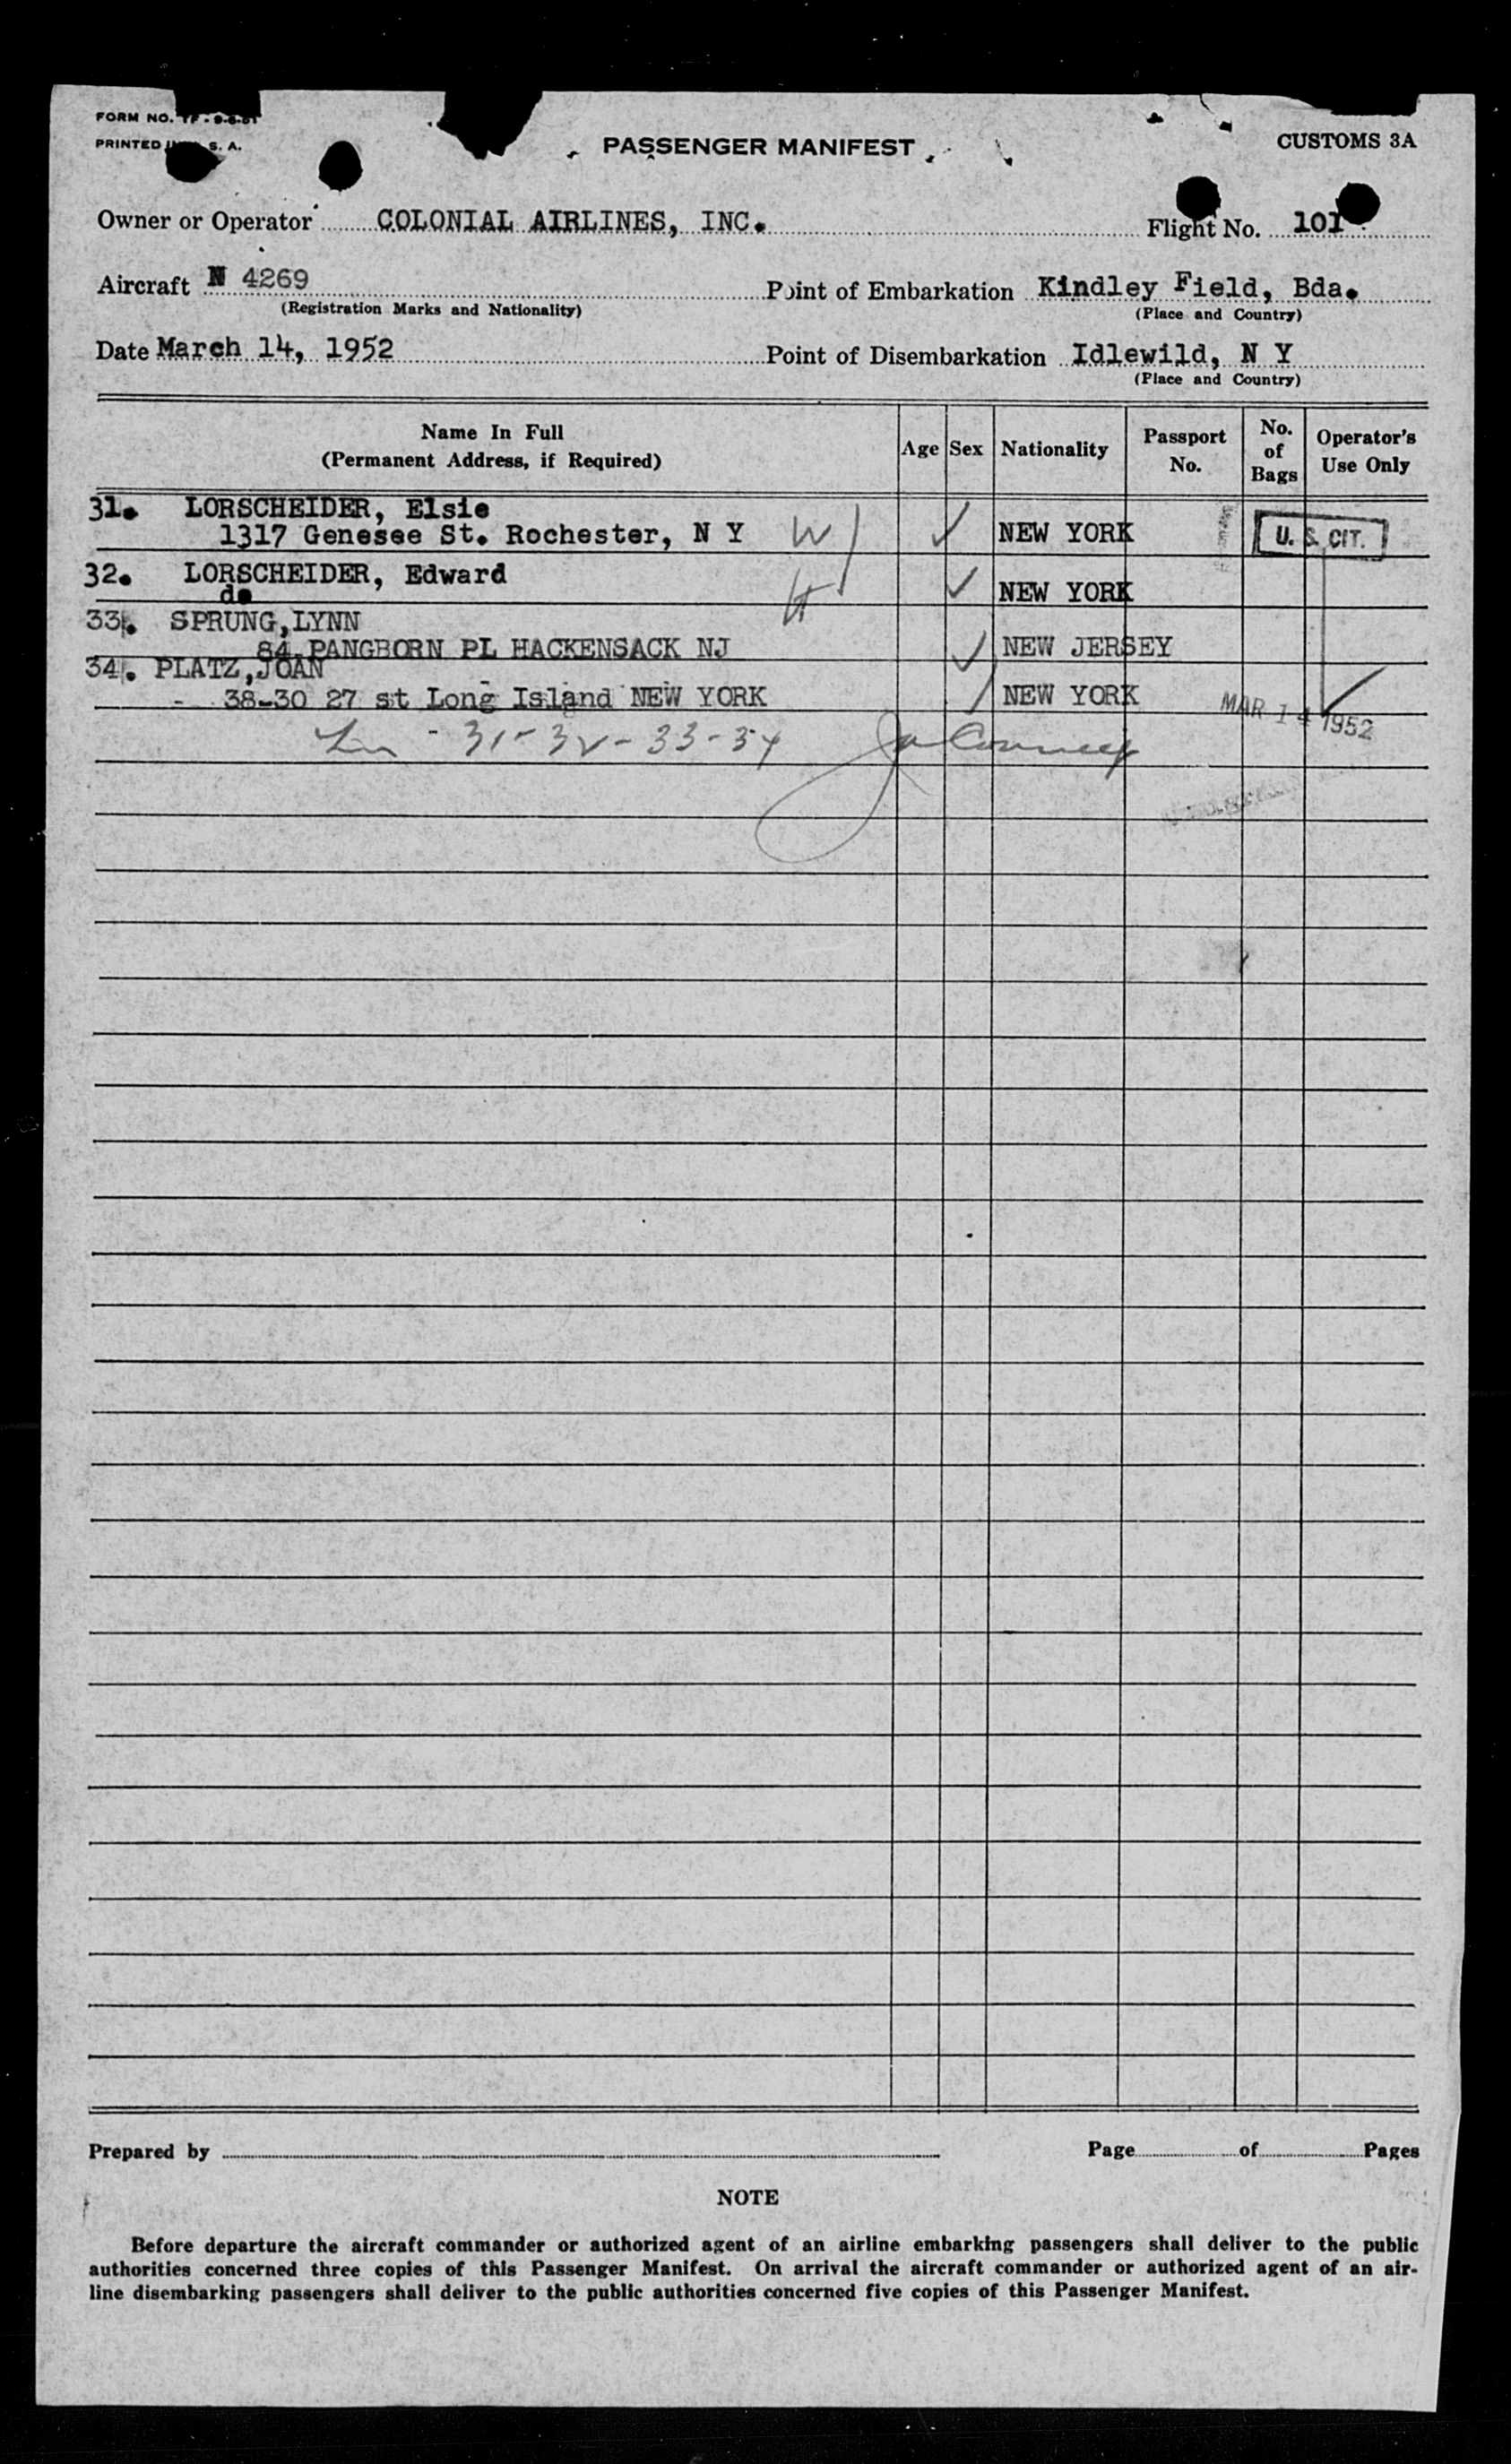 FORM NO. TF - 9-6-51
PRINTED IN U. S. A.
PASSENGER MANIFEST
CUSTOMS 3A
Owner or Operator COLONIAL AIRLINES, INC.
Flight No. 101
Aircraft N 4269
(Registration Marks and Nationality)
Point of Embarkation Kindley Field, Bda.
(Place and Country)
Date March 14, 1952
Point of Disembarkation Idlewild, N Y
(Place and Country)
Name In Full
(Permanent Address, if Required)
Age
Sex
Nationality
Passport
No.
No.
of
Bags
Operator's
Use Only
31. LORSCHEIDER, Elsie
1317 Genesee St. Rochester, N Y W NEW YORK U. S. CIT.
32. LORSCHEIDER, Edward
do H NEW YORK
33. SPRUNG,LYNN
84 PANGBORN PL HACKENSACK NJ NEW JERSEY
34. PLATZ,JOAN
- 38-30 27 st Long Island NEW YORK NEW YORK
MAR 14 1952
31-32-33-34
Prepared by
Page of Pages
NOTE
Before departure the aircraft commander or authorized agent of an airline embarking passengers shall deliver to the public
authorities concerned three copies of this Passenger Manifest. On arrival the aircraft commander or authorized agent of an air-
line disembarking passengers shall deliver to the public authorities concerned five copies of this Passenger Manifest.